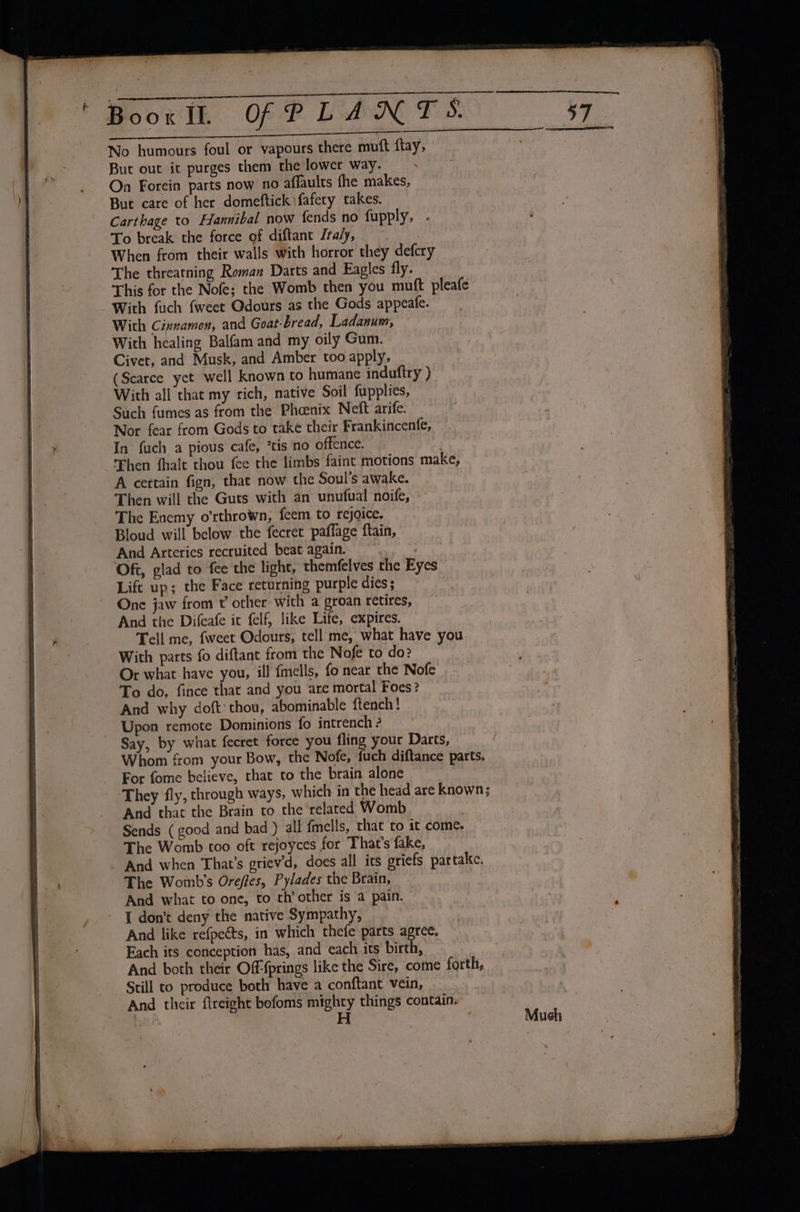 Book II. Of PLANTS. 57
No humours foul or vapours there muſt ſtay,
But out it purges them the lower way.
On Forein parts now no aſſaults ſhe makes,
But care of her domeſtick ſafety takes.
Carthage to Hannibal now ſends no ſupply,
To break the force of diſtant Italy,
When from their walls with horror they deſcry
The threatning Roman Darts and Eagles fly.
This for the Noſe; the Womb then you muſt pleaſe
With ſuch ſweet Odours as the Gods appeaſe.
With Cinnamon, and Goat-bread, Ladanum,
With healing Balſam and my oily Gum.
Civet, and Musk, and Amber too apply,
(Scarce yet well known to humane induſtry)
With all that my rich, native Soil ſupplies,
Such fumes as from the Phœnix Neſt ariſe.
Nor fear from Gods to take their Frankincenſe,
In ſuch a pious caſe, 'tis no offence.
Then ſhalt thou ſee the limbs faint motions make,
A certain ſign, that now the Soul's awake.
Then will the Guts with an unuſual noiſe,
The Enemy o'rthrown, ſeem to rejoice.
Bloud will below the ſecret paſſage ſtain,
And Arteries recruited beat again.
Oft, glad to ſee the light, themſelves the Eyes
Lift up; the Face returning purple dies;
One jaw from t' other with a groan retires,
And the Diſeaſe it ſelf, like Life, expires.
Tell me, ſweet Odours, tell me, what have you
With parts ſo diſtant from the Noſe to do?
Or what have you, ill ſmells, ſo near the Noſe
To do, ſince that and you are mortal Foes?
And why doſt thou, abominable ſtench!
Upon remote Dominions ſo intrench?
Say, by what ſecret force you fling your Darts,
Whom from your Bow, the Noſe, ſuch diſtance parts.
For ſome believe, that to the brain alone
They fly, through ways, which in the head are known;
And that the Brain to the related Womb
Sends (good and bad) all ſmells, that to it come.
The Womb too oft rejoyces for That's ſake,
And when That's griev'd, does all its griefs partake.
The Womb's Oreſtes, Pylades the Brain,
And what to one, to th' other is a pain.
I don't deny the native Sympathy,
And like reſpects, in which theſe parts agree,
Each its conception has, and each its birth,
And both their Off-ſprings like the Sire, come forth,
Still to produce both have a conſtant vein,
And their ſtreight boſoms mighty things contain.
H Much